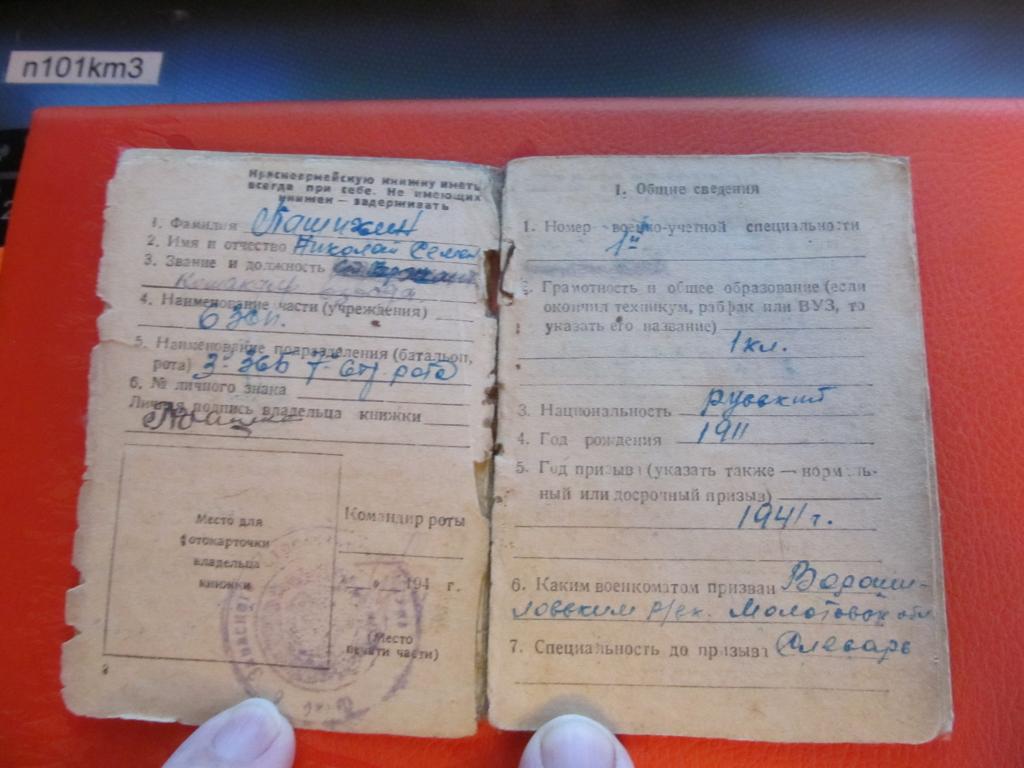 n101km3
Красноармейскую книжку иметь
всегда при себе. Не имеющих
книжек — задерживать
1. Фамилия
2. Имя и отчество Николай Семен
3. Звание и должность
4. Наименование части (учреждения)
6 зсп.
5. Наименование подразделения (батальон,
рота) 3й зсб 7й стр рота
6. № личного знака
Личная подпись владельца книжки
Место для
фотокарточки
владельца
книжки
Командир роты
" 194 г.
(Место
печати части)
2
I. Общие сведения
1. Номер военно-учетной специальности
1й
2. Грамотность и общее образование (если
окончил техникум, рабфак или ВУЗ, то
указать его название)
1 кл.
3. Национальность русский
4. Год рождения 1911
5. Год призыва (указать также — нормаль-
ный или досрочный призыв)
1941 г.
6. Каким военкоматом призван Вороши-
ловским Молотовск обл
7. Специальность до призыва Слесарь